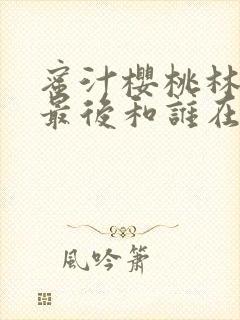 蜜汁櫻桃林
最後和誰在
風吟簫